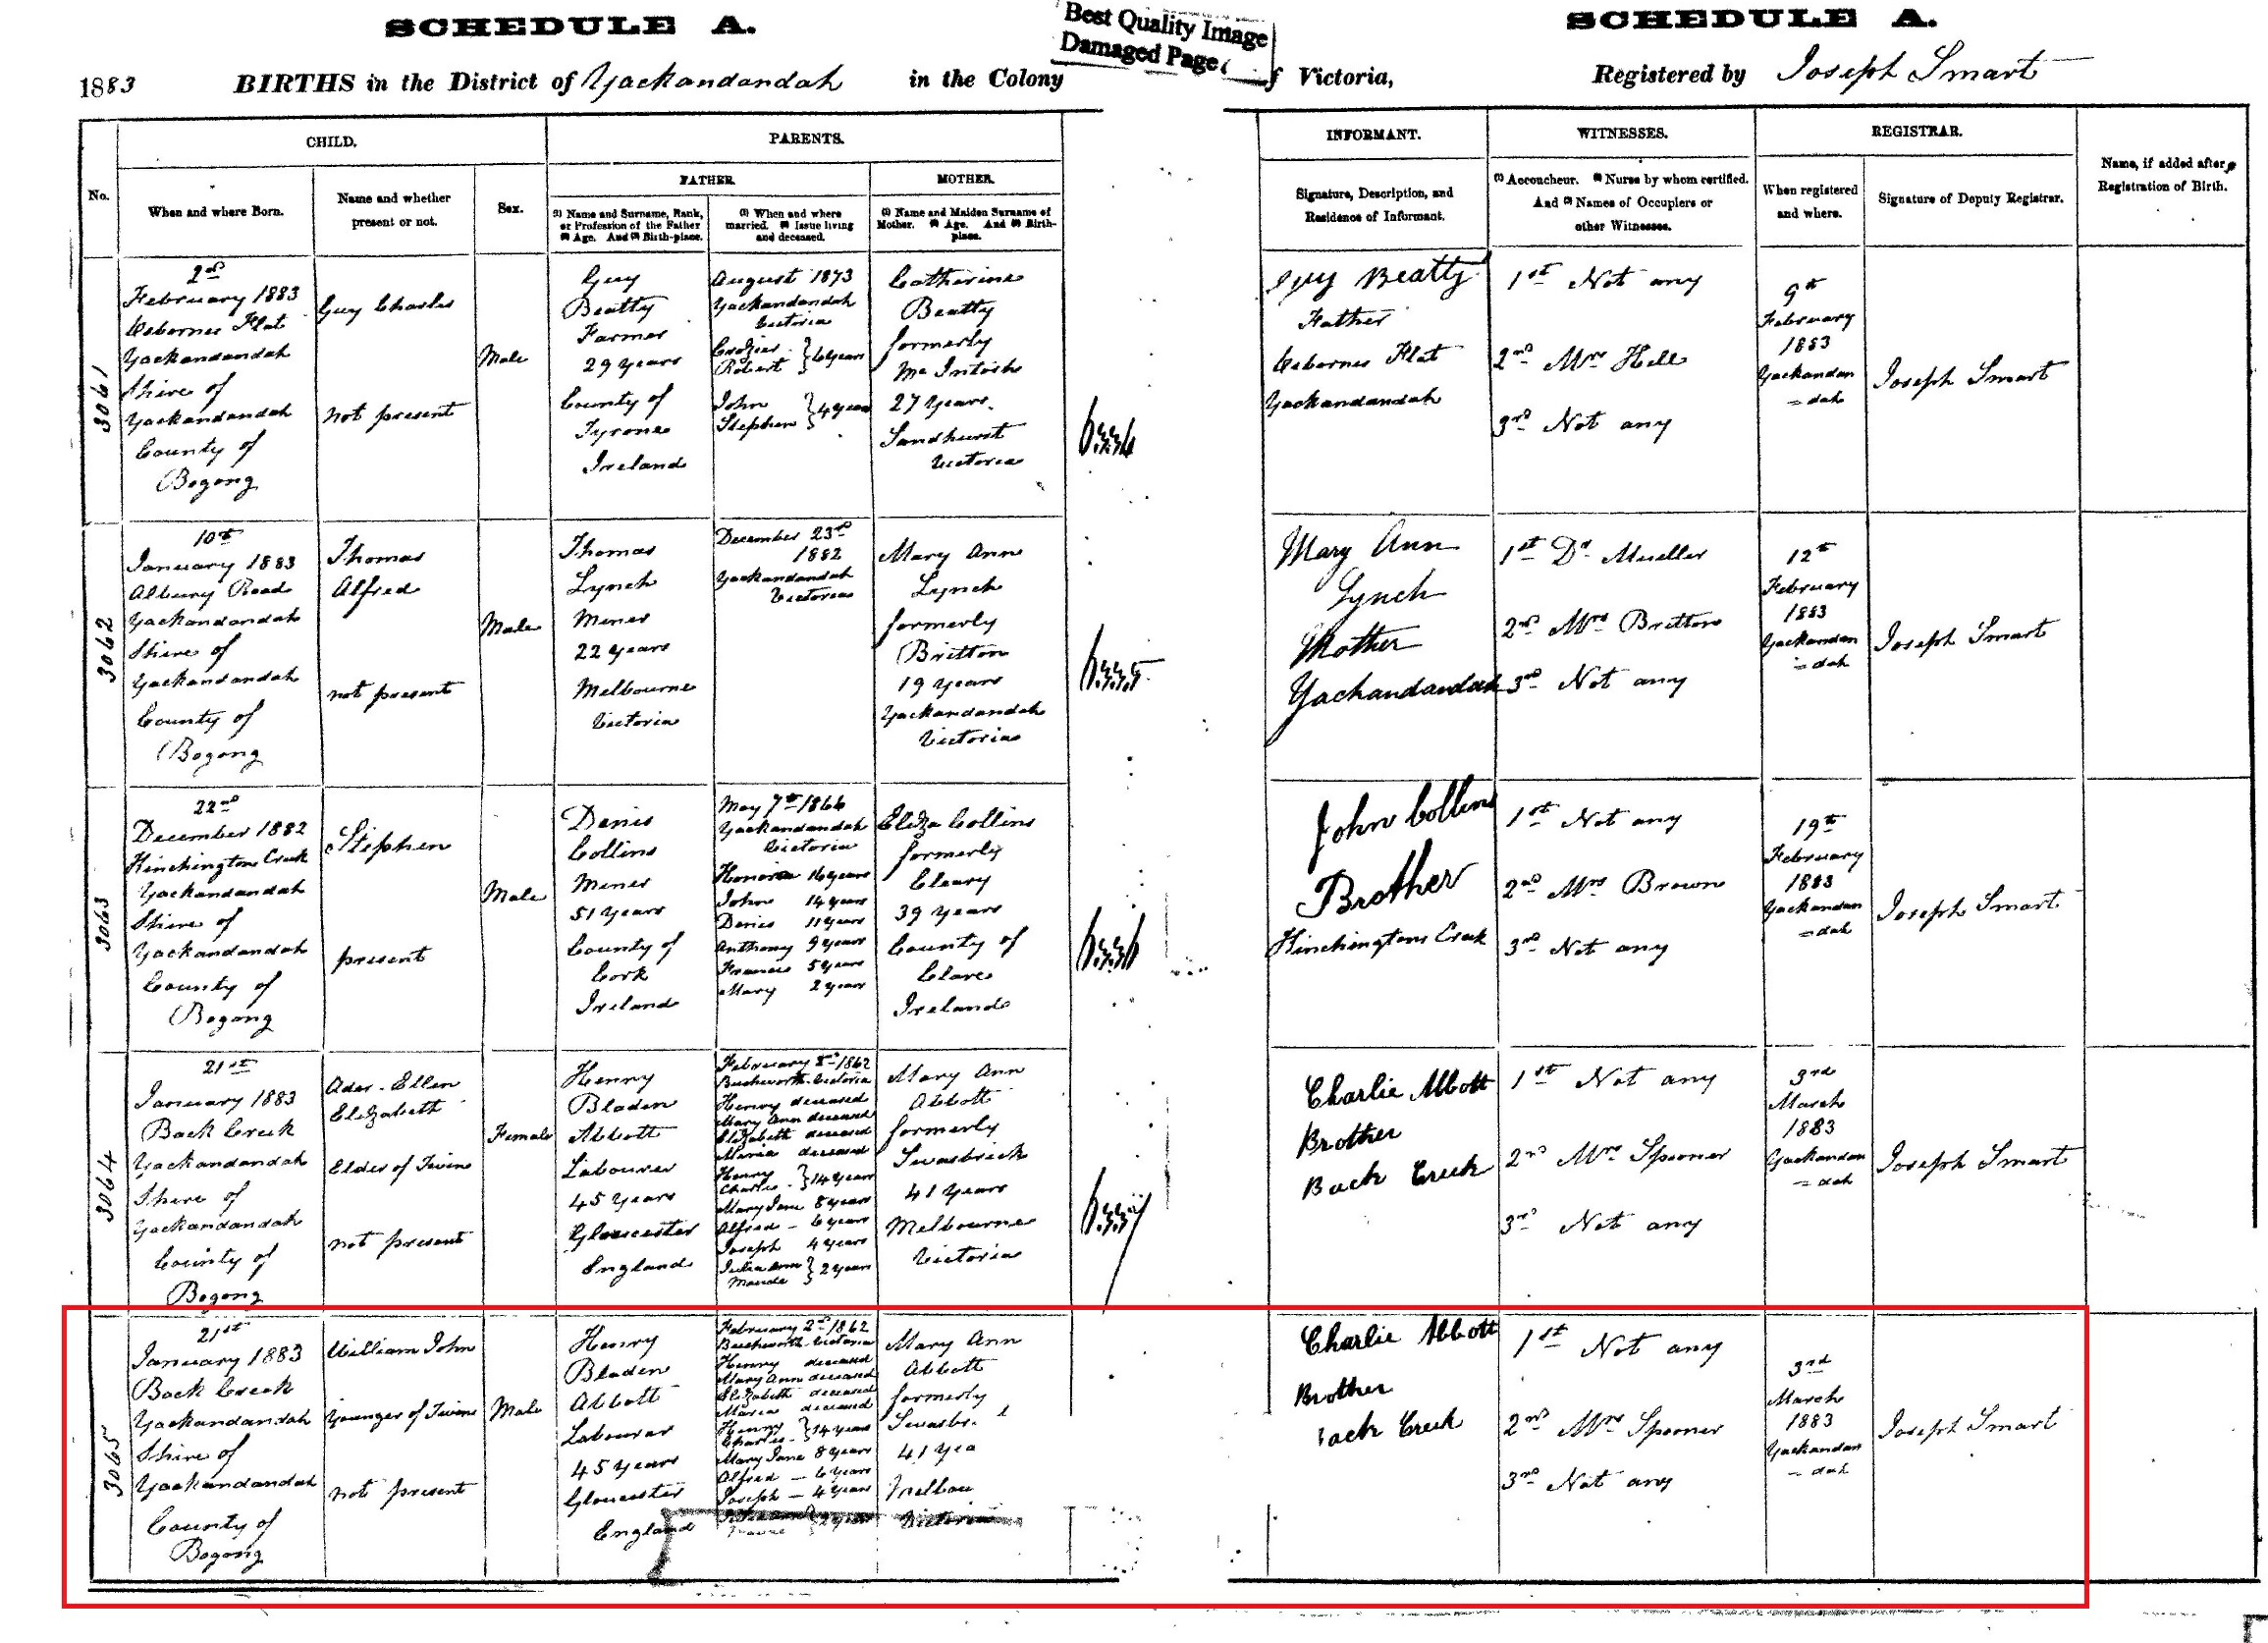 SCHEDULE A.
Best Quality Image
Damaged Page
SCHEDULE A.
1883 BIRTHS in the District of Yackandandah in the Colony
f Victoria, Registered by Joseph Smart
No.
CHILD.
When and where Born.
Name and whether
present or not.
Sex.
PARENTS.
FATHER.
(1) Name and Surname, Rank,
or Profession of the Father
(2) Age. And (3) Birth-place.
(1) When and where
married. (2) Issue living
and deceased.
MOTHER.
(1) Name and Maiden Surname of
Mother. (2) Age. And (3) Birth-
place.
INFORMANT.
Signature, Description, and
Residence of Informant.
WITNESSES.
(1) Accoucheur. (2) Nurse by whom certified.
And (3) Names of Occupiers or
other Witnesses.
REGISTRAR.
When registered
and where.
Signature of Deputy Registrar.
Name, if added after
Registration of Birth.
3061
2nd
February 1883
Osbornes Flat
Yackandandah
Shire of
Yackandandah
County of
Bogong
Guy Charles
not present
Male
Guy
Beatty
Farmer
29 years
County of
Tyrone
Ireland
August 1873
Yackandandah
Victoria
Robert } 6 years
John
Stephen } 4 years
Catherine
Beatty
formerly
McIntosh
27 years
Sandhurst
Victoria
Guy Beatty
Father
Osbornes Flat
Yackandandah
1st Not any
2nd Mrs Hill
3rd Not any
9th
February
1883
Yackandan
=dah
Joseph Smart
3062
10th
January 1883
Albury Road
Yackandandah
Shire of
Yackandandah
County of
Bogong
Thomas
Alfred
not present
Male
Thomas
Lynch
Miner
22 years
Melbourne
Victoria
December 23rd
1882
Yackandandah
Victoria
Mary Ann
Lynch
formerly
Britton
19 years
Yackandandah
Victoria
Mary Ann
Lynch
Mother
Yackandandah
1st Dr Mueller
2nd Mrs Britton
3rd Not any
12th
February
1883
Yackandan
=dah
Joseph Smart
3063
22nd
December 1882
Hinchingtons Creek
Yackandandah
Shire of
Yackandandah
County of
Bogong
Stephen
present
Male
Denis
Collins
Miner
51 years
County of
Cork
Ireland
May 7th 1866
Yackandandah
Victoria
Honoria 16 years
John 14 years
Denis 11 years
Anthony 9 years
Francis 5 years
Mary 2 years
Eliza Collins
formerly
Cleary
39 years
County of
Clare
Ireland
John Collins
Brother
Hinchingtons Creek
1st Not any
2nd Mrs Brown
3rd Not any
19th
February
1883
Yackandan
=dah
Joseph Smart
3064
21st
January 1883
Back Creek
Yackandandah
Shire of
Yackandandah
County of
Bogong
Ader Ellen
Elizabeth
Elder of Twins
not present
Female
Henry
Bladen
Abbott
Labourer
45 years
Gloucester
England
February 2nd 1862
Beechworth Victoria
Henry deceased
Mary Ann deceased
Elizabeth deceased
Maria deceased
Henry
Charles } 14 years
Mary Jane 8 years
Alfred — 6 years
Joseph 4 years
Julia Ann
Maude } 2 years
Mary Ann
Abbott
formerly
Swasbrick
41 years
Melbourne
Victoria
Charlie Abbott
Brother
Back Creek
1st Not any
2nd Mrs Spooner
3rd Not any
3rd
March
1883
Yackandan
=dah
Joseph Smart
3065
21st
January 1883
Back Creek
Yackandandah
Shire of
Yackandandah
County of
Bogong
William John
Younger of Twins
not present
Male
Henry
Bladen
Abbott
Labourer
45 years
Gloucester
England
February 2nd 1862
Beechworth Victoria
Henry deceased
Mary Ann deceased
Elizabeth deceased
Maria deceased
Henry
Charles } 14 years
Mary Jane 8 years
Alfred — 6 years
Joseph — 4 years
2 years
Mary Ann
Abbott
formerly
Swasbr
41 yea
Melbou
Victoria
Charlie Abbott
Brother
ack Creek
1st Not any
2nd Mrs Spooner
3rd Not any
3rd
March
1883
Yackandan
=dah
Joseph Smart